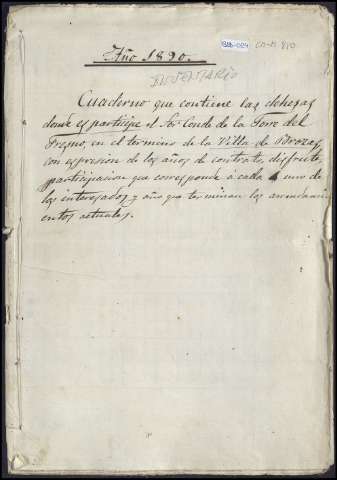 Año 1890.
INVENTARIO
Cuaderno que contiene las dehesas
donde es participe el Sor Conde de la Torre del
Fresno, en el termino de la Villa de Brozas,
con espresion de los años de contrato, disfrute,
participacion que corresponde á cada uno de
los interesados y año que terminan los arrendami-
entos actuales.